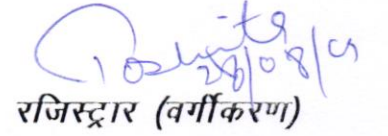 28/08/09
रजिस्ट्रार (वर्गीकरण)